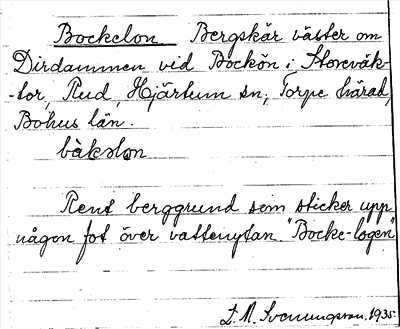 Bockelon Bergskär väster om
Dirdammen vid Bockön i Storevik-
-tor, Rud, Hjärtum sn, Torpe härad,
Bohus län.
bå̀kelon
Rent berggrund som sticker upp
någon fot över vattenytan. "Bocke-logen"
L. M. Svenungsson. 1935.